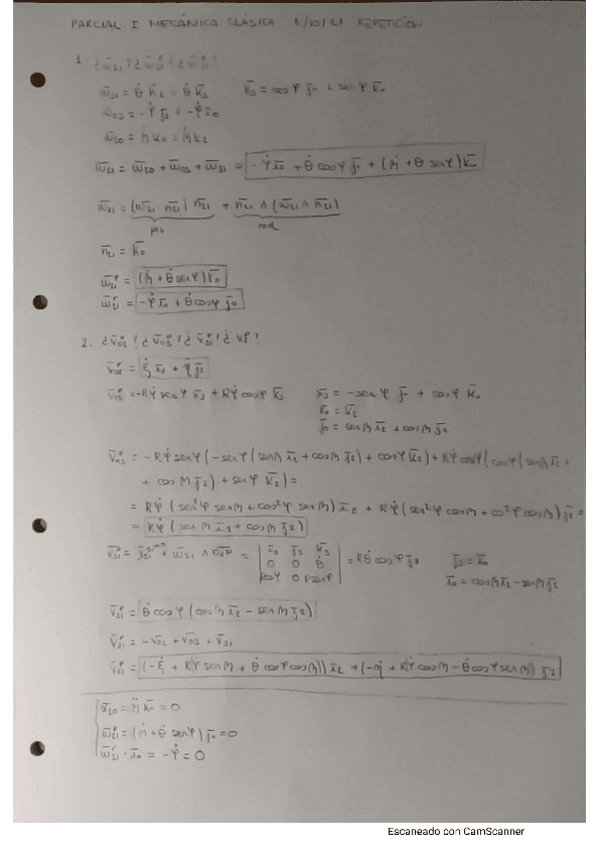 PARCIAL I MECÁNICA CLÁSICA 8/10/21 REPETICIÓN
1. ¿ω̄₂₁? ¿ω̄₂₁ᵖ? ¿ω̄₂₁ʳ?
ω̄₃₁ = θ̇ k̄₁ = θ̇ k̄₃ k̄₃ = cosφ j̄₀ + senφ k̄₀
ω̄₀₃ = -φ̇ j̄₃ = -φ̇ ī₀
ω̄₂₀ = η̇ k̄₀ = η̇ k̄₂
ω̄₂₁ = ω̄₂₀ + ω̄₀₃ + ω̄₃₁ = -φ̇ ī₀ + θ̇ cosφ j̄₀ + (η̇ + θ̇ senφ) k̄₀
ω̄₂₁ = (ω̄₂₁ n̄₂₁) n̄₂₁ + n̄₂₁ ∧ (ω̄₂₁ ∧ n̄₂₁)
piv rod
n̄₂₁ = k̄₀
ω̄₂₁ᵖ = (η̇ + θ̇ senφ) k̄₀
ω̄₂₁ʳ = -φ̇ ī₀ + θ̇ cosφ j̄₀
2. ¿v̄₀₂ᵖ? ¿v̄₀₃ᵖ? ¿v̄₃₁ᵖ? ¿v̄₂₁ᵖ?
v̄₀₂ᵖ = ξ̇ ī₂ + η̇ j̄₂
v̄₀₃ᵖ = -Rφ̇ senφ ī₃ + Rφ̇ cosφ k̄₃ ī₃ = -senφ j̄₀ + cosφ k̄₀
k̄₀ = k̄₂
j̄₀ = senη ī₂ + cosη j̄₂
v̄₀₃ᵖ = -Rφ̇ senφ (-senφ (senη ī₂ + cosη j̄₂) + cosφ k̄₂) + Rφ̇ cosφ (cosφ (senη ī₂ +
+ cosη j̄₂) + senφ k̄₂) =
= Rφ̇ (sen²φ senη + cos²φ senη) ī₂ + Rφ̇ (sen²φ cosη + cos²φ cosη) j̄₂ =
= Rφ̇ (senη ī₂ + cosη j̄₂)
+ ω̄₃₁ ∧ = | ī₃ j̄₃ k̄₃ | = Rθ̇ cosφ j̄₃ j̄₃ = ī₀
0 0 θ̇ ī₀ = cosη ī₂ - senη j̄₂
Rcosφ 0 Rsenφ
v̄₃₁ᵖ = θ̇ cosφ (cosη ī₂ - senη j̄₂)
v̄₂₁ᵖ = -v̄₀₂ + v̄₀₃ + v̄₃₁
v̄₂₁ᵖ = (-ξ̇ + R(φ̇ senη + θ̇ cosφ cosη)) ī₂ + (-η̇ + R(φ̇ cosη - θ̇ cosφ senη)) j̄₂
= η̈ k̄₀ = 0
ω̄₂₁ᵖ = (η̇ + θ̇ senφ) j̄₀ = 0
ω̄₂₁ʳ · ī₀ = -φ̇ = 0
Escaneado con CamScanner